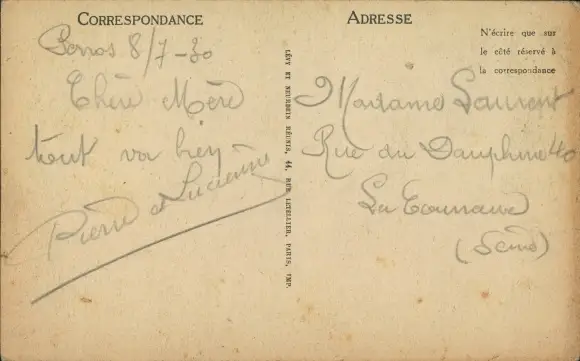 CORRESPONDANCE
Perros 8/7-30
Chère Mère
tout va bien
Pierre et Lucienne
LÉVY ET NEURDEIN RÉUNIS, 44, RUE LETELLIER, PARIS, IMP.
ADRESSE
N'écrire que sur
le côté réservé à
la correspondance
Madame Laurent
Rue du Dauphiné 40
La
(Seine)